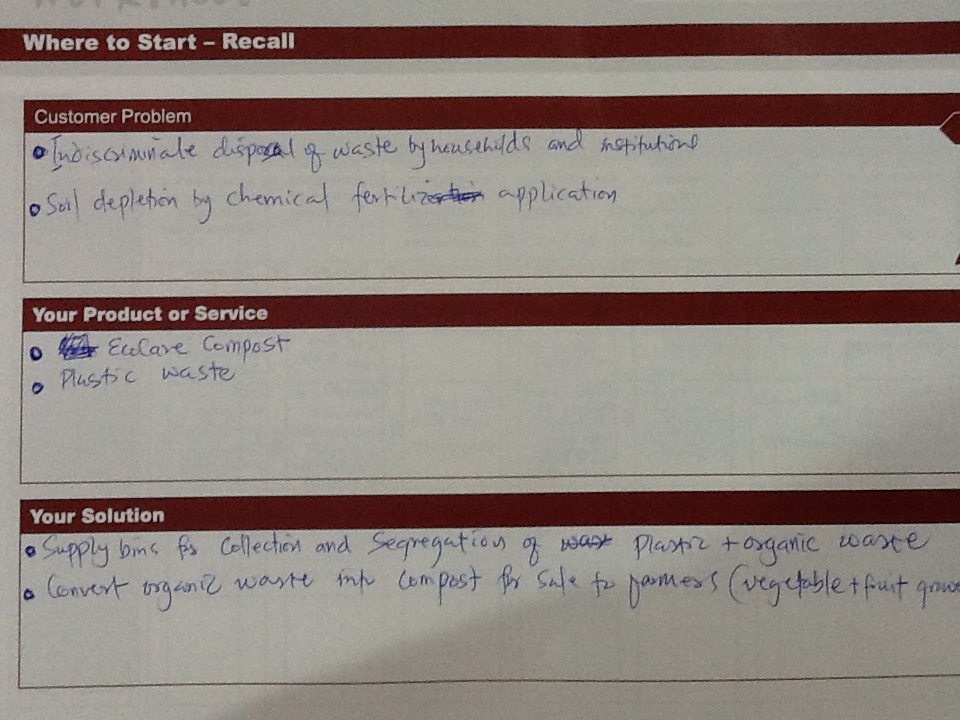 Where to Start – Recall
Customer Problem
• Indiscriminate disposal of waste by households and institutions
• Soil depletion by chemical application
Your Product or Service
• EcoCare Compost
• Plastic waste
Your Solution
• Supply bins for Collection and Segregation of Plastic + organic waste
• Convert organic waste into compost for sale to farmers (vegetable + fruit